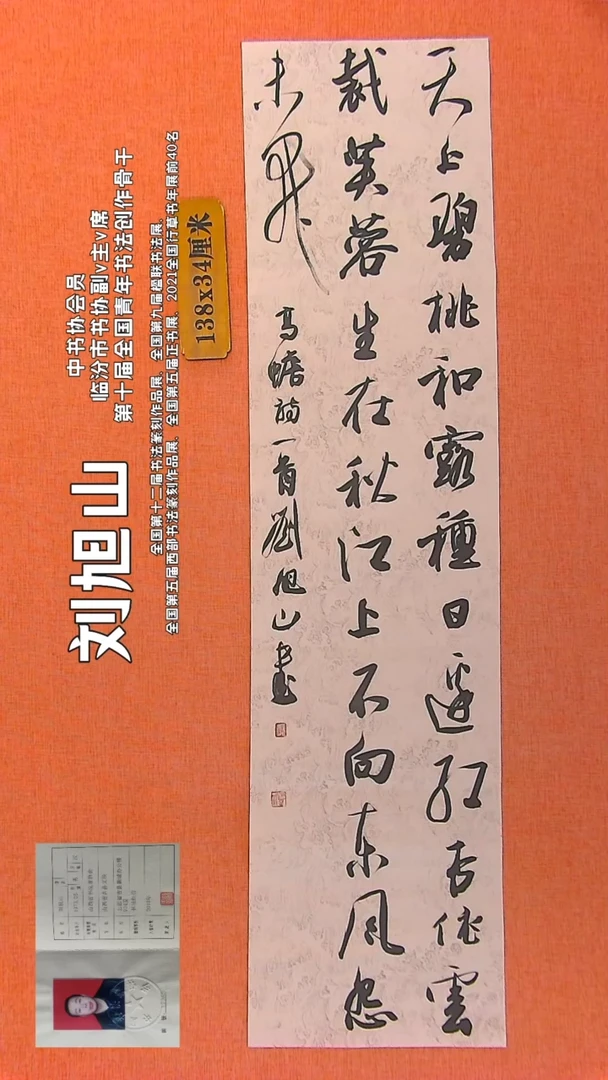 刘旭山
中书协会员
临汾市书协副v主v席
第十届全国青年书法创作骨干
全国第十二届书法篆刻作品展、全国第九届楹联书法展、
全国第五届西部书法篆刻作品展、全国第五届正书展、2021全国行草书年展前40名
138x34厘米
天上碧桃和露種日邊紅杏倚雲
裁芙蓉生在秋江上不向東風怨
未開
高蟾詩一首劉旭山書